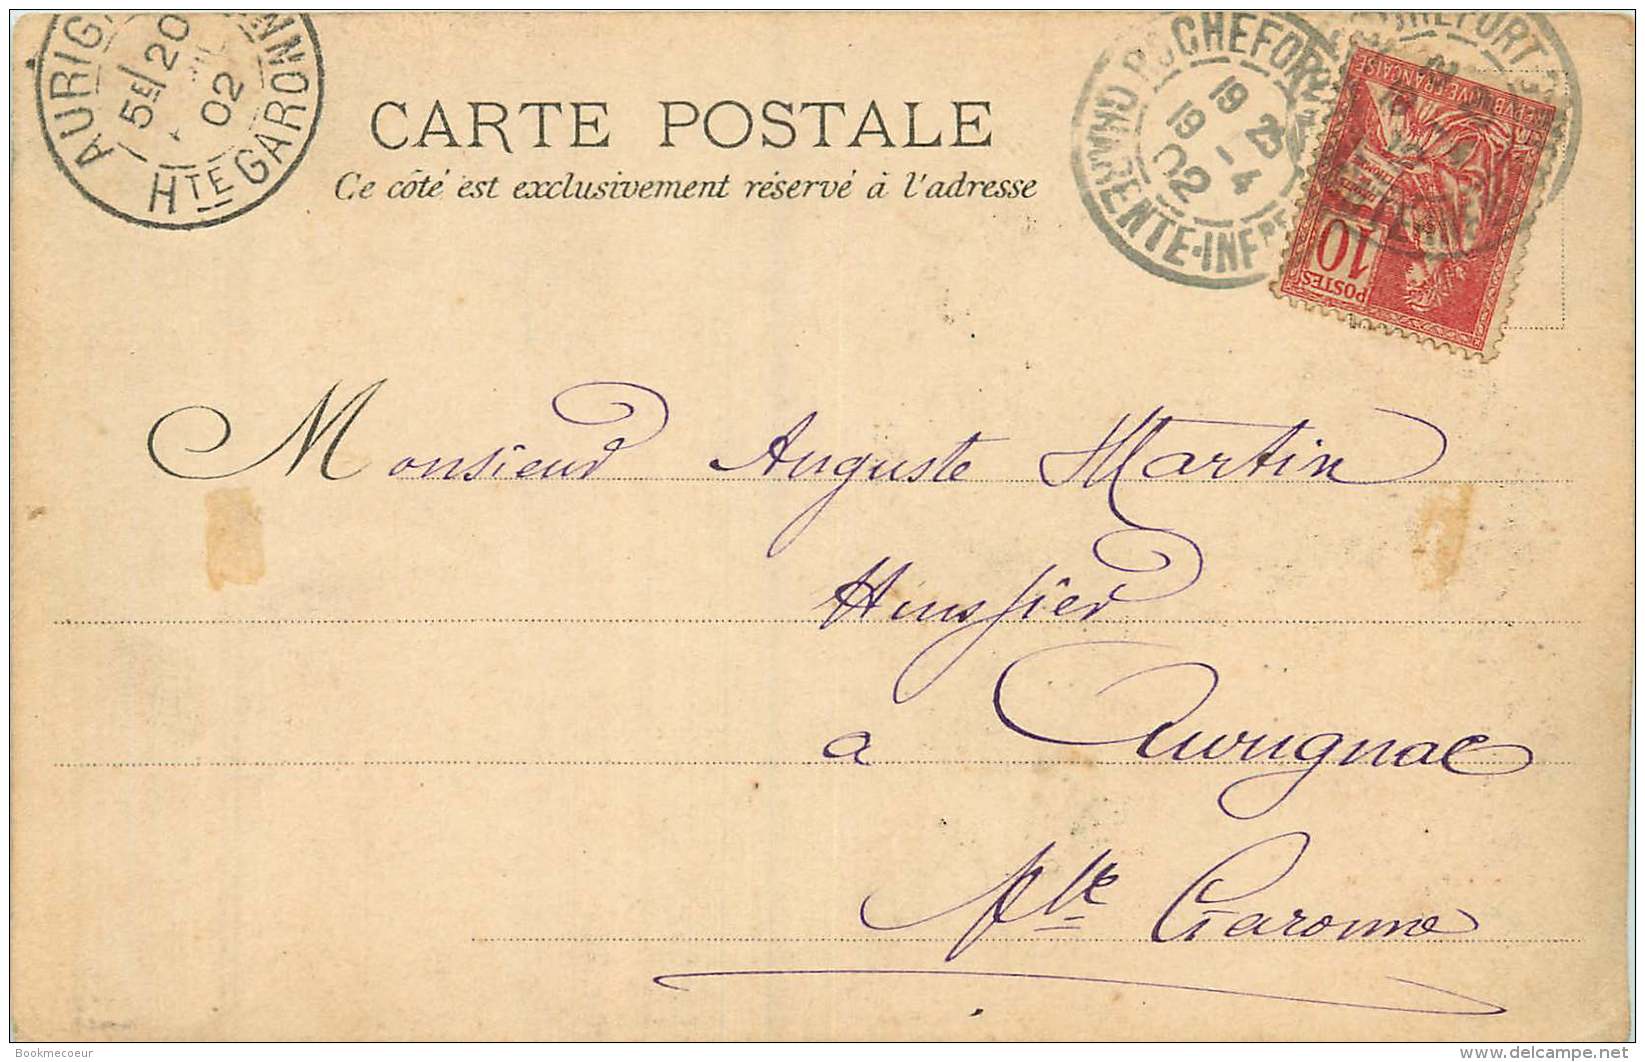 AURIG
HTE GARONNE
5E/ 20
02
CARTE POSTALE
Ce côté est exclusivement réservé à l'adresse
ROCHEFORT
CHARENTE-INFRE
19 25
19 - 4
02
REPUBLIQUE FRANÇAISE
10
POSTES
Monsieur Auguste Martin
Huissier
a Aurignac
Hte Garonne
Bookmecoeur
delcampe.net